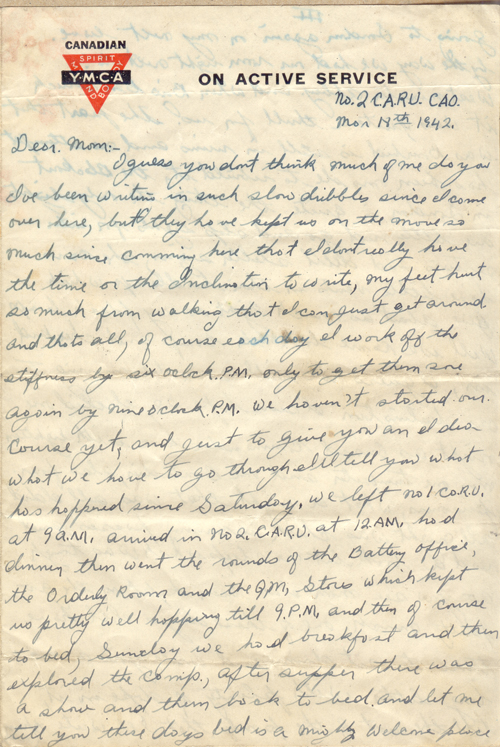 CANADIAN
SPIRIT
Y·M·C·A
MIND BODY
ON ACTIVE SERVICE
No. 2 C.A.R.U. CAO.
Mar 17th 1942.
Dear Mom:-
I guess you dont think much of me do you
I've been writing in such slow dribbles since I come
over here, but they have kept us on the move so
much since comming here that I dont really have
the time or the Inclination to write, my feet hurt
so much from walking that I can just get around
and thats all, of course each day I work off the
stiffness by six oclock P.M. only to get them sore
again by nine oclock P.M. We haven't started our
course yet, and just to give you an idea
what we have to go through I'll tell you what
has happened since Saturday. We left No 1 C.A.R.U.
at 9 a.M. arrived in No 2. C.A.R.U. at 12 A.M. had
dinner then went the rounds of the Battery Office,
the Orderly Room and the Q.M. Stores which kept
us pretty well hopping till 9 P.M, and then of course
to bed, Sunday we had breakfast and then
explored the camp, after supper there was
a show and them back to bed. and let me
tell you these days bed is a mighty welcome place